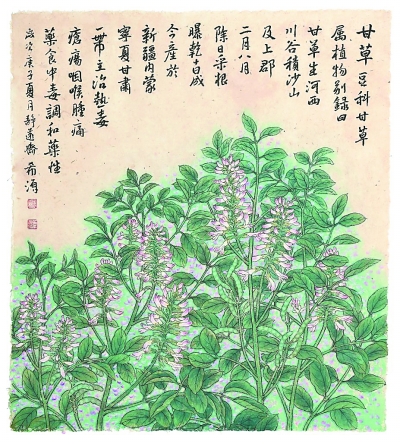 甘草豆科甘草
属植物别録曰
甘草生河西
川谷積沙山
及上郡
二月八月
除日采根
曝乾十日成
今産於
新疆内蒙
寧夏甘肅
一帶主治熱毒
瘡瘍咽喉腫痛
藥食中毒調和藥性
歳次庚子夏月静遠齋希海